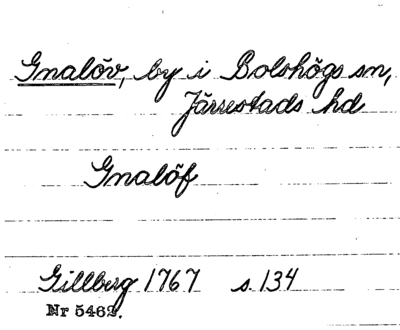 Gnalöv, by i Bolshögs sn,
Järrestads hd
Gnalöf
Gillberg 1767 s. 134
Nr 5462.